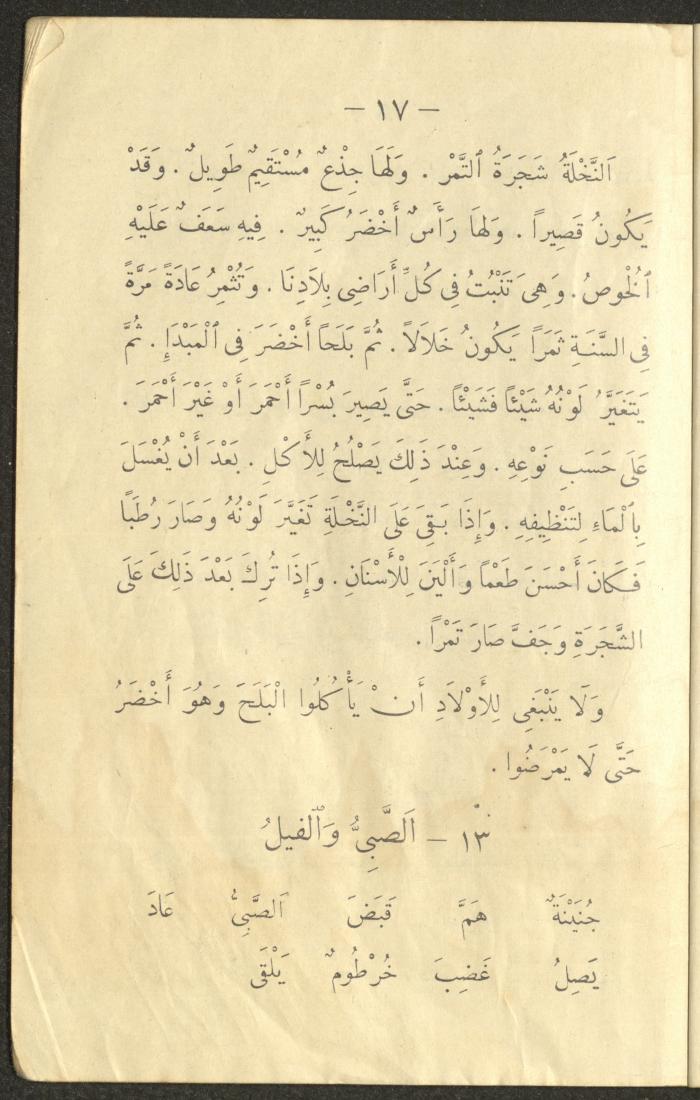 – ١٧ –
اَلنَّخْلَةُ شَجَرَةُ ٱلتَّمْرِ . وَلَهَا جِذْعٌ مُسْتَقِيمٌ طَوِيلٌ . وَقَدْ
يَكُونُ قَصِيراً . وَلَهَا رَأْسٌ أَخْضَرُ كَبِيرٌ . فِيهِ سَعَفٌ عَلَيْهِ
ٱلْخُوصُ . وَهِىَ تَنْبُتُ فِى كُلِّ أَرَاضِى بِلَادِنَا . وَتُثْمِرُ عَادَةً مَرَّةً
فِى السَّنَةِ ثَمَرَاً يَكُونُ خَلَالاً . ثُمَّ بَلَحاً أَخْضَرَ فِى ٱلْمَبْدَإِ . ثُمَّ
يَتَغَيَّرُ لَوْنُهُ شَيْئاً فَشَيْئاً . حَتَّى يَصِيرَ بُسْراً أَحْمَرَ أَوْ غَيْرَ أَحْمَرَ .
عَلَى حَسَبِ نَوْعِهِ . وَعِنْدَ ذَلِكَ يَصْلُحُ لِلأَكْلِ . بَعْدَ أَنْ يُغْسَلَ
بِالْمَاءِ لِتَنْظِيفِهِ . وَإِذَا بَقِىَ عَلَى النَّخْلَةِ تَغَيَّرَ لَوْنُهُ وَصَارَ رُطَباً
فَكَانَ أَحْسَنَ طَعْماً وَأَلْيَنَ لِلْأَسْنَانِ . وَإِذَا تُرِكَ بَعْدَ ذَلِكَ عَلَى
الشَّجَرَةِ وَجَفَّ صَارَ تَمْراً .
وَلَا يَنْبَغِى لِلأَوْلَادِ أَنْ يَأْكُلُوا الْبَلَحَ وَهُوَ أَخْضَرُ
حَتَّى لَا يَمْرَضُوا .
١٣ – اَلصَّبِىُّ وَٱلْفيلُ
جُنَيْنَةٌ هَمَّ قَبَضَ اَلصَّبِىُّ عَادَ
يَصِلُ غَضِبَ خُرْطُومٌ يَلْقَى